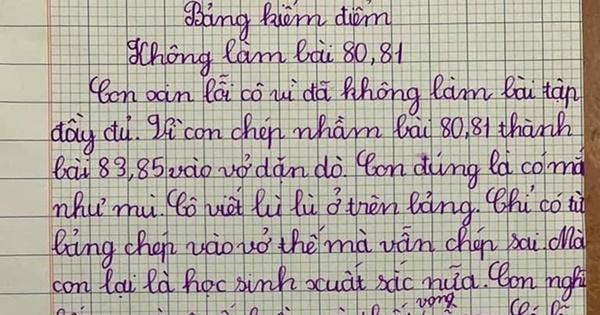 Bảng kiểm điểm
Không làm bài 80,81
Con xin lỗi cô vì đã không làm bài tập
đầy đủ. Vì con chép nhầm bài 80,81 thành
bài 83,85 vào vở dặn dò. Con đúng là có mắ
như mù. Cô viết lù lù ở trên bảng. Chỉ có từ
bảng chép vào vở thế mà vẫn chép sai. Mà
con lại là học sinh xuất sắc nữa. Con nghĩ
vọng